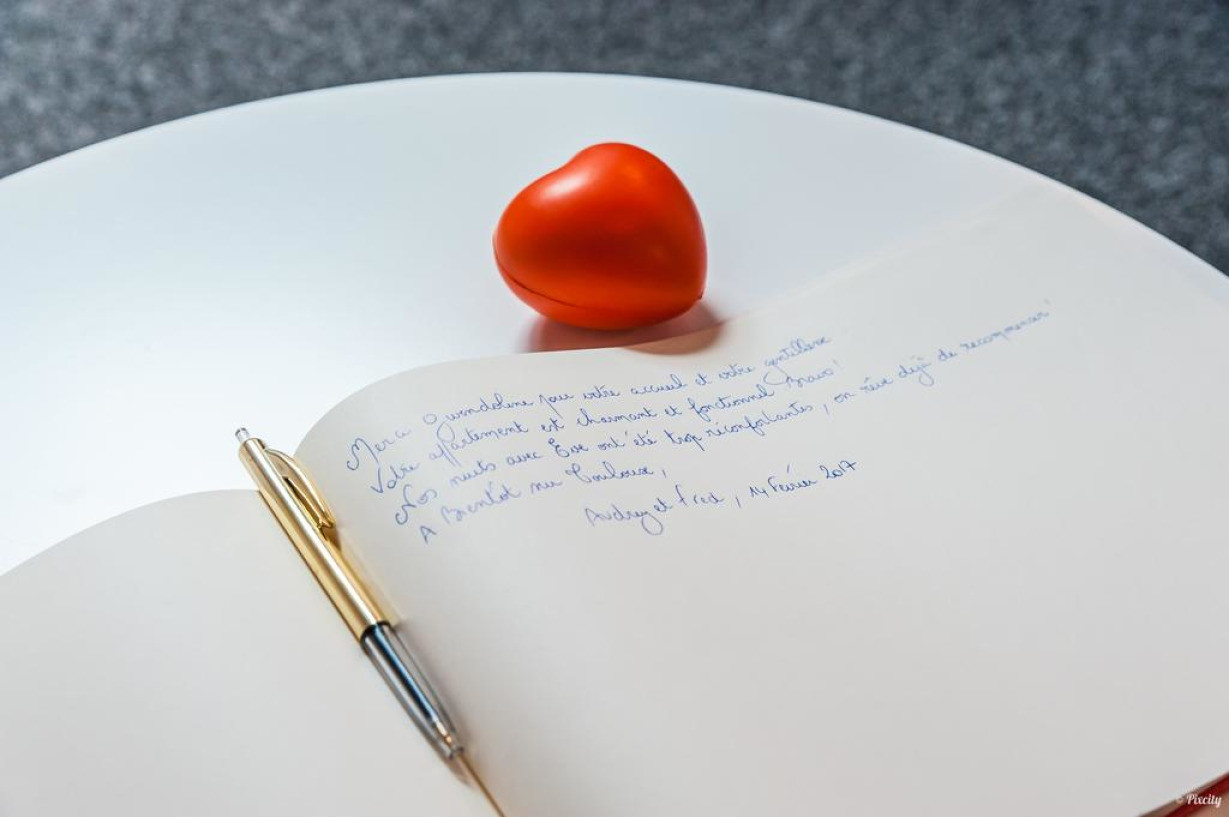 Merci Gwendoline pour votre accueil et votre gentillesse
Votre appartement est charmant et fonctionnel Bravo!
Nos nuits avec Eve ont été trop réconfortantes, on rêve déjà de recommencer!
A Bientôt sur Toulouse,
Audrey et Fred, 14 Février 2017
© Pixcity